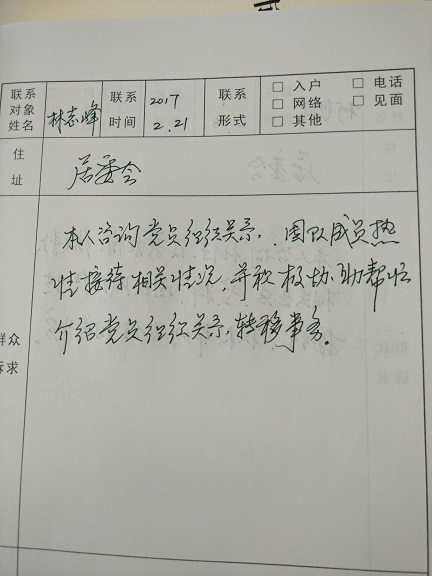 联系对象姓名 林志峰 联系时间 2017 2.21 联系形式 □ 入户 □ 电话
□ 网络 □ 见面
□ 其他
住址 居委会
群众诉求
本人咨询党员组织关系,团队成员热
情接待相关情况,并积极协助帮忙
介绍党员组织关系,转移事务。